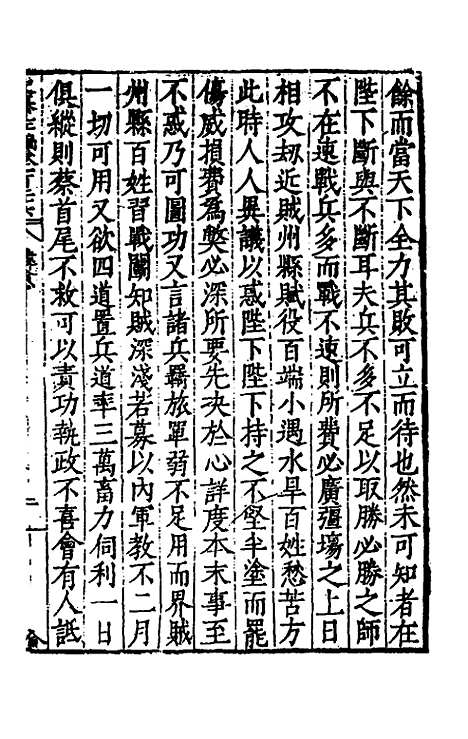 餘而當天下全力其敗可立而待也然未可知者在
陛下斷與不斷耳夫兵不多不足以取勝必勝之師
不在速戰兵多而戰不速則所費必廣疆埸之上日
相攻刼近賊州縣賦役百端小遇水旱百姓愁苦方
此時人人異議以惑陛下陛下持之不堅半塗而罷
傷威損費爲弊必深所要先决於心詳度本末事至
不惑乃可圖功又言諸兵羇旅單弱不足用而界賊
州縣百姓習戰鬭知賊深淺若募以内軍教不二月
一切可用又欲四道置兵道率三萬畜力伺利一日
俱縱則蔡首尾不救可以責功執政不喜會有人詆